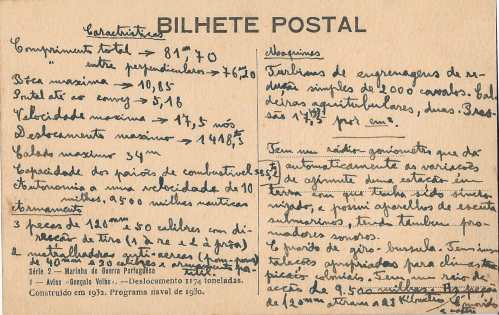 BILHETE POSTAL
Caractristicas
Comprimento total → 81,m70
" entre perpendiculares → 76,m20
Bôca maxima → 10,85
Pontal até ao convez → 5,18
Velocidade maxima → 17,5 nós
Deslocamento maximo → 1418,5
Calado maximo 34m
Capacidade dos paióes de combustivel 335,t2
Autonomia a uma velocidade de 10
milhas. 9500 milhas nauticas
Armamento
3 peças de 120mm e 50 calibres com di-
recção de tiro (1 à re e 2 à prôa)
2 metralhadoras anti-aereas (pom-pom)
de 40mm a 20 calibres e armamento por-
tatil.
Série 2 — Marinha de Guerra Portuguesa
1 — Aviso «Gonçalo Velho». — Deslocamento 1174 toneladas.
Construido em 1932. Programa naval de 1930.
Maquinas
Turbinas de engrenagens de re-
dução simples de 2000 cavalos. Cal-
deiras aquitubulares, duas. Pres-
são por cm2.
Tem um rádio-goniometro que dá
automaticamente as variações
de azimute duma estação em
terra com que tenha sido sincro-
nizado, e possui aparelhos de escuta
submarinos, tendo tambem pro-
madores sonoros.
É provido de giro-bussola. Tem ins-
talações apropriadas para climas tro-
picais coloniais. Tem um raio de
acção de 9.500 milhas. As peças
de 120mm atiram a kilometros